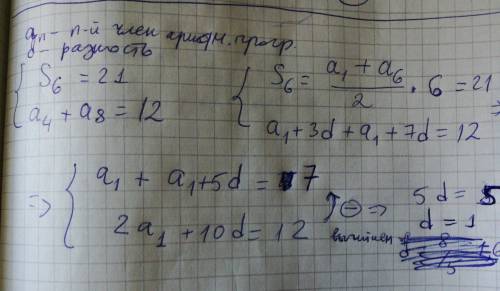 aₙ - n-й член арифм. прогр.
d - разность
S₆ = 21
a₄ + a₈ = 12
S₆ = (a₁ + a₆)/2 · 6 = 21
a₁ + 3d + a₁ + 7d = 12 ⇒
⇒ { a₁ + a₁ + 5d = 7
2a₁ + 10d = 12
↑⊖ ⇒ 5d = 5
вычитаем d = 1